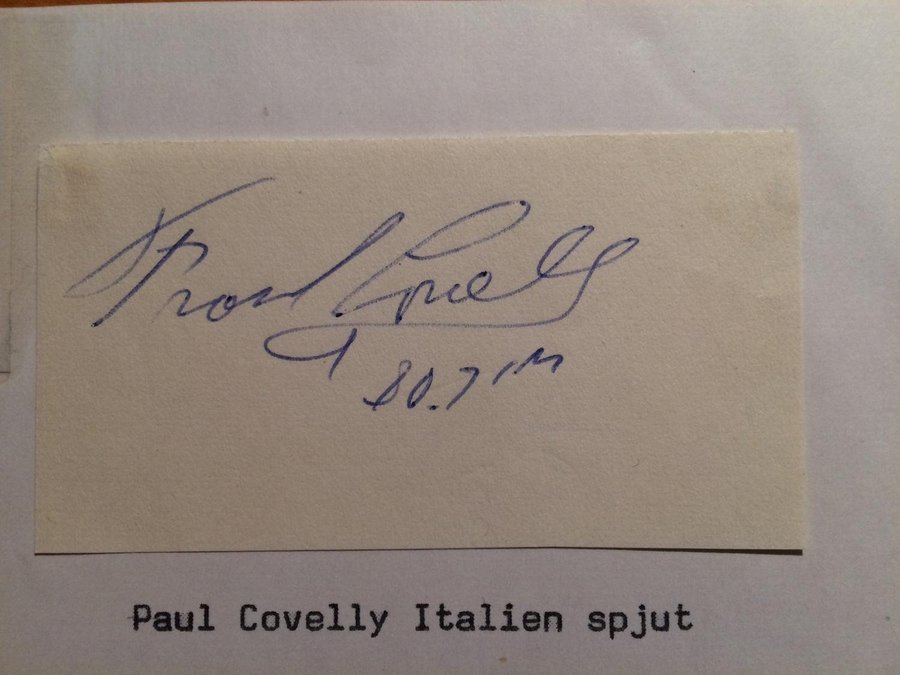 Frank Covelly
80.71m
Paul Covelly Italien spjut